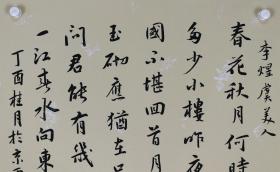 李煜虞美人
春花秋月何時
多少小樓昨夜
國不堪回首月
玉砌應猶在只
問君能有幾
一江春水向東
丁酉桂月於京